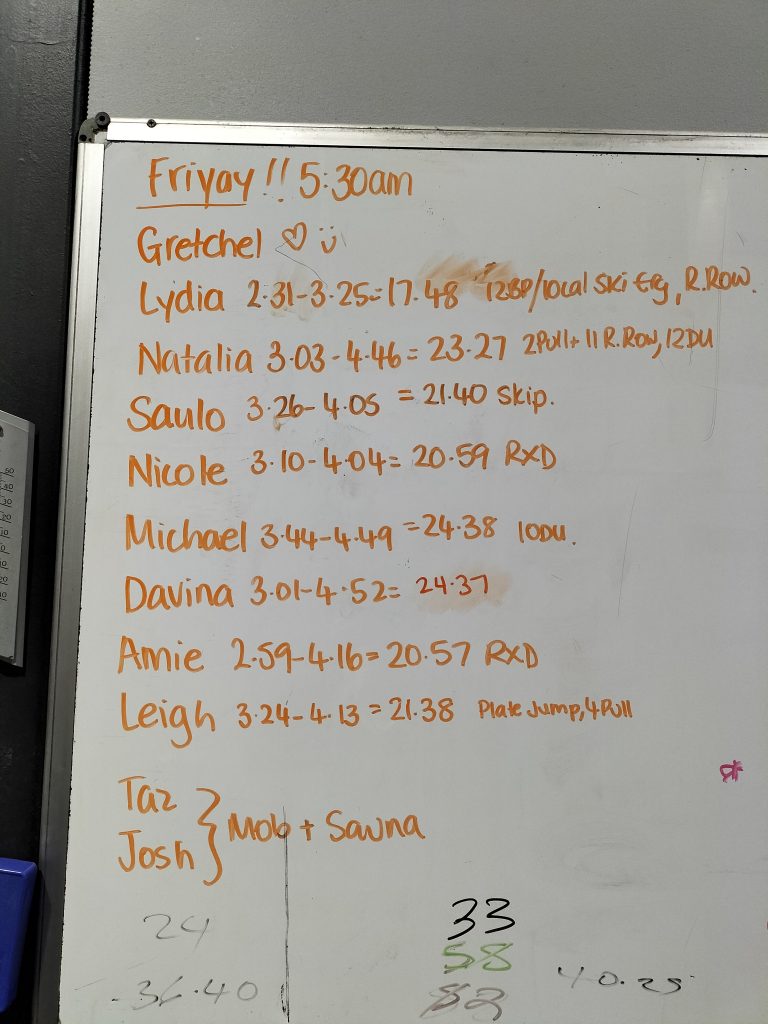 Friyay!! 5:30am
Gretchel ♡ ü
Lydia 2.31-3.25=17.48 12BP/10cal Ski Erg, R.ROW.
Natalia 3.03-4.46=23.27 2Pull+ 11 R.Row, 12DU
Saulo 3.26-4.05 =21.40 Skip.
Nicole 3.10-4.04= 20.59 RXD
Michael 3.44-4.49 =24.38 10DU.
Davina 3.01-4.52= 24.37
Amie 2.59-4.16=20.57 RXD
Leigh 3.24-4.13=21.38 Plate Jump, 4 Pull
Taz
Josh } Mob + Sauna
24 33
58
36.40 83 40.25